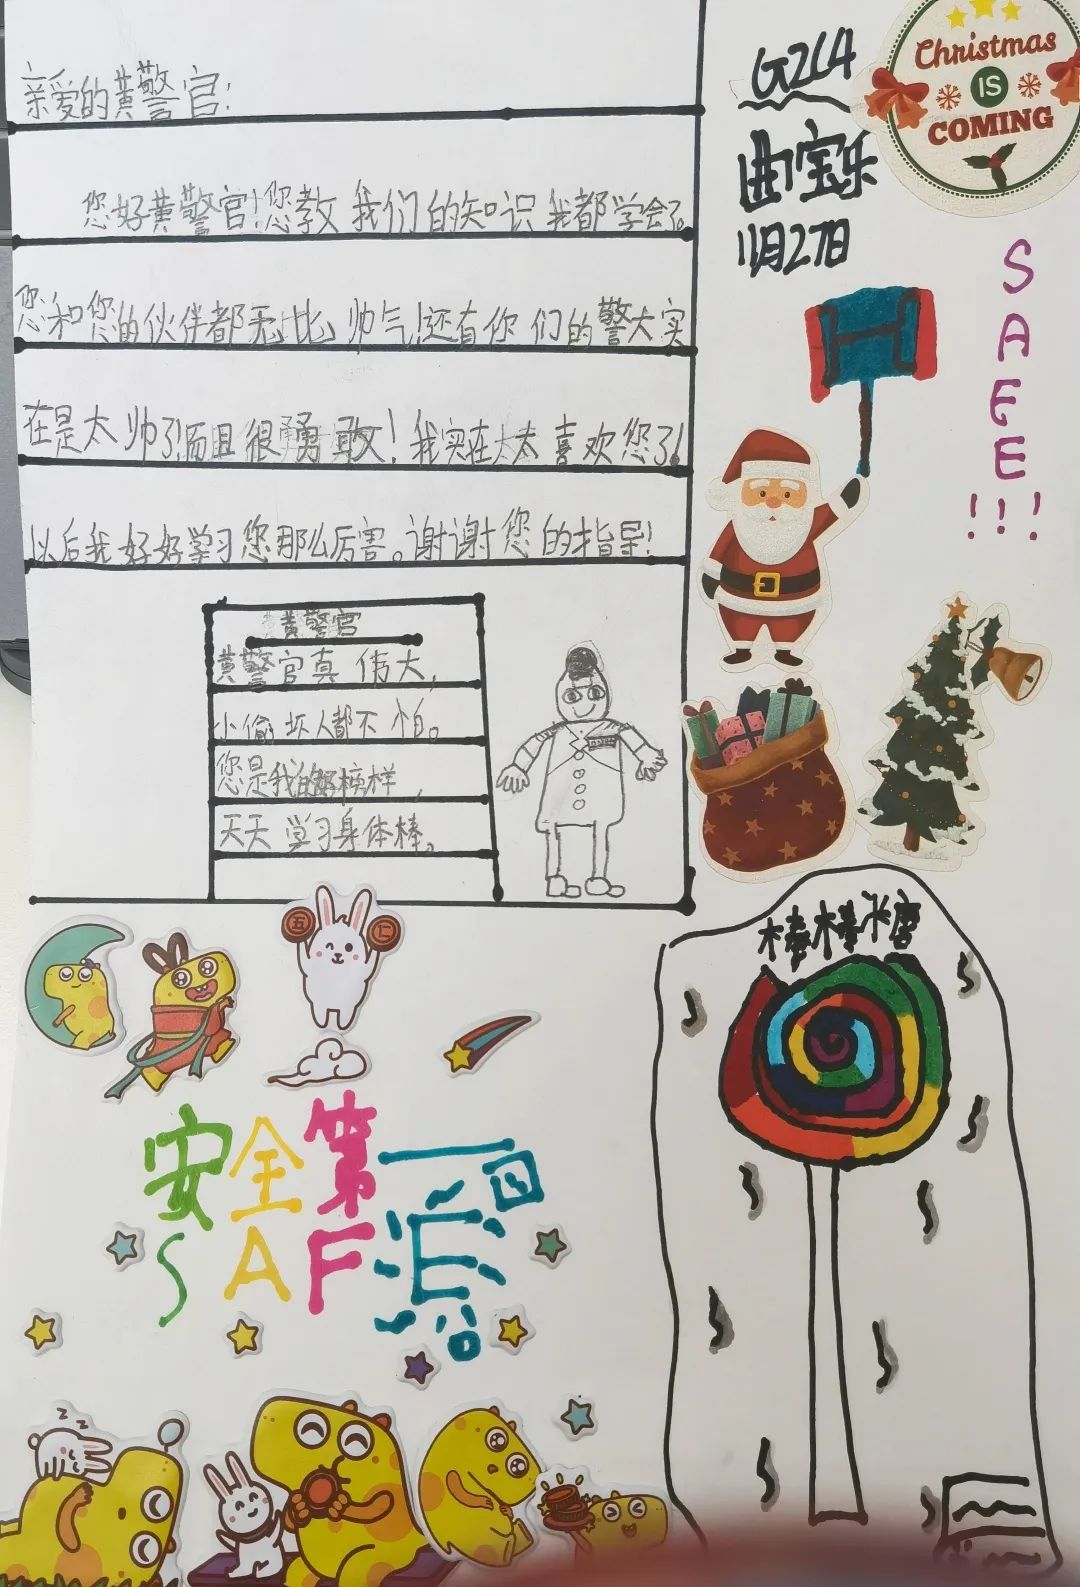 亲爱的黄警官:
您好黄警官!您教我们的知识我都学会了。
您和您的伙伴都无比帅气!还有你们的警犬实
在是太帅了!而且很勇敢!我实在太太喜欢您了!
以后我好好学习您那么厉害。谢谢您的指导!
黄警官
黄警官真伟大,
小偷坏人都不怕。
您是我的好榜样,
天天学习身体棒。
G2C4
曲宝乐
11月27日
Christmas
IS
COMING
SAFE!!!
棒棒糖
五 仁
安全第一
SAFE
z z